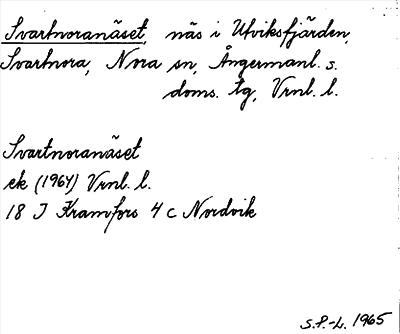 Svartnoranäset, näs i Utviksfjärden,
Svartnora, Nora sn, Ångermanl. s.
doms. tg, Vrnl. l.
Svartnoranäset
ek (1964) Vrnl. l.
18 I Kramfors 4 c Nordvik
S.P.-L. 1965